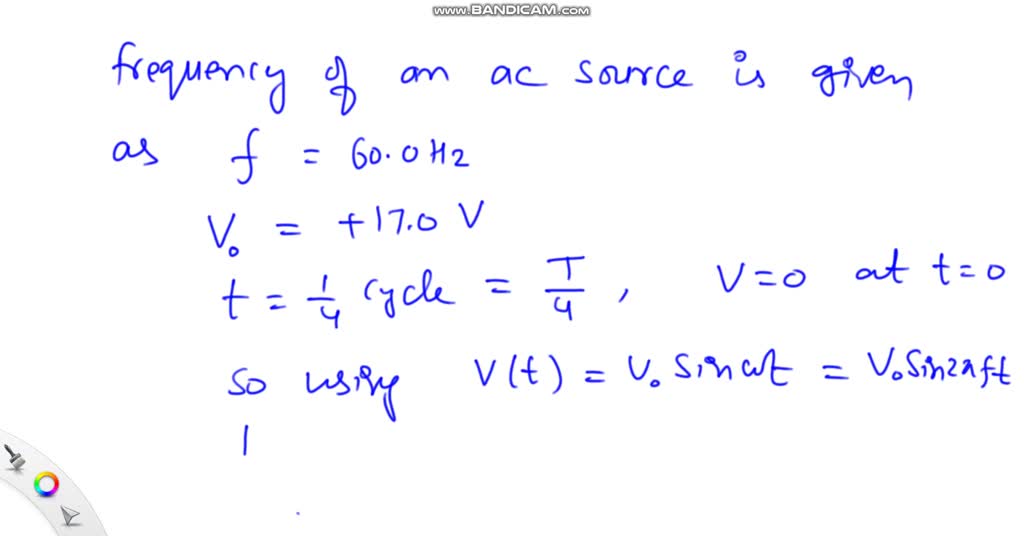 www.BANDICAM.com
frequency of an ac source is given
as f = 60.0 Hz
V₀ = +17.0 V
t = 1/4 cycle = T/4, V=0 at t=0
so using V(t) = V₀ sin ωt = V₀ sin2πft